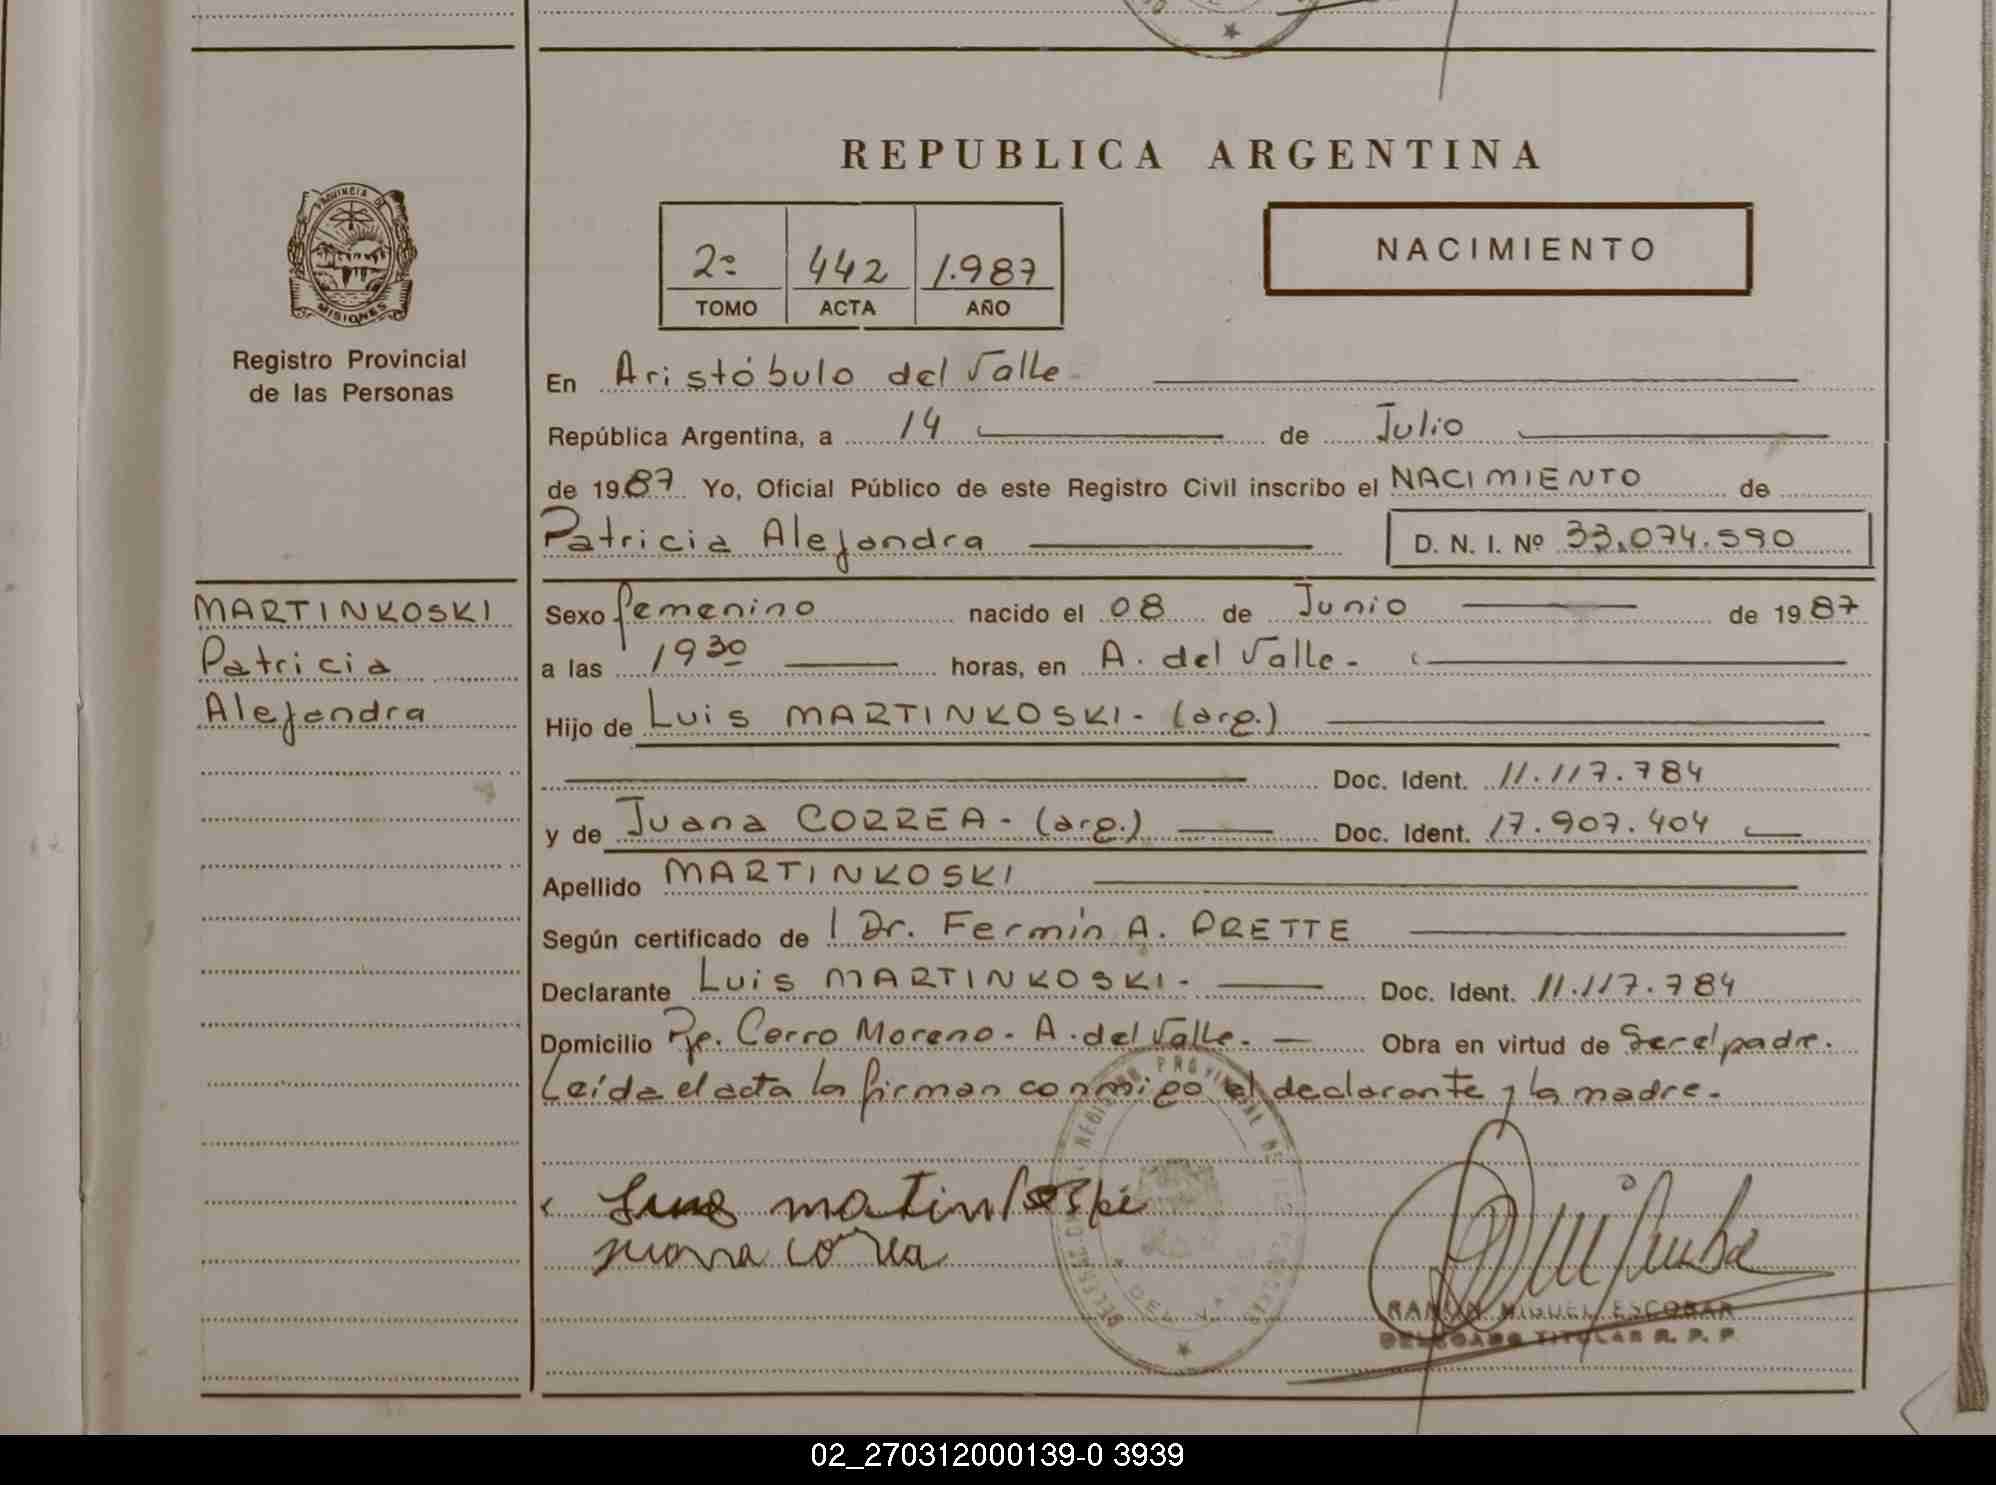 REPUBLICA ARGENTINA
PROVINCIA DE
MISIONES
Registro Provincial
de las Personas
2º 442 1.987
TOMO ACTA AÑO
NACIMIENTO
En Aristóbulo del Valle
República Argentina, a 14 de Julio
de 1987 Yo, Oficial Público de este Registro Civil inscribo el NACIMIENTO de
Patricia Alejandra D. N. I. Nº 33.074.590
MARTINKOSKI
Patricia
Alejandra
Sexo femenino nacido el 08 de Junio de 1987
a las 19 30 horas, en A. del Valle.-
Hijo de Luis MARTINKOSKI- (arg.)
Doc. Ident. 11.117.784
y de Juana CORREA- (arg.) Doc. Ident. 17.907.404
Apellido MARTINKOSKI
Según certificado de l Dr. Fermín A. PRETTE
Declarante Luis MARTINKOSKI- Doc. Ident. 11.117.784
Domicilio Pje. Cerro Moreno- A. del Valle.- Obra en virtud de ser el padre.
Leída el acta la firman conmigo el declarante y la madre.-
RAMON MIGUEL ESCOBAR
DELEGADO TITULAR R. P. P.
02_270312000139-0 3939